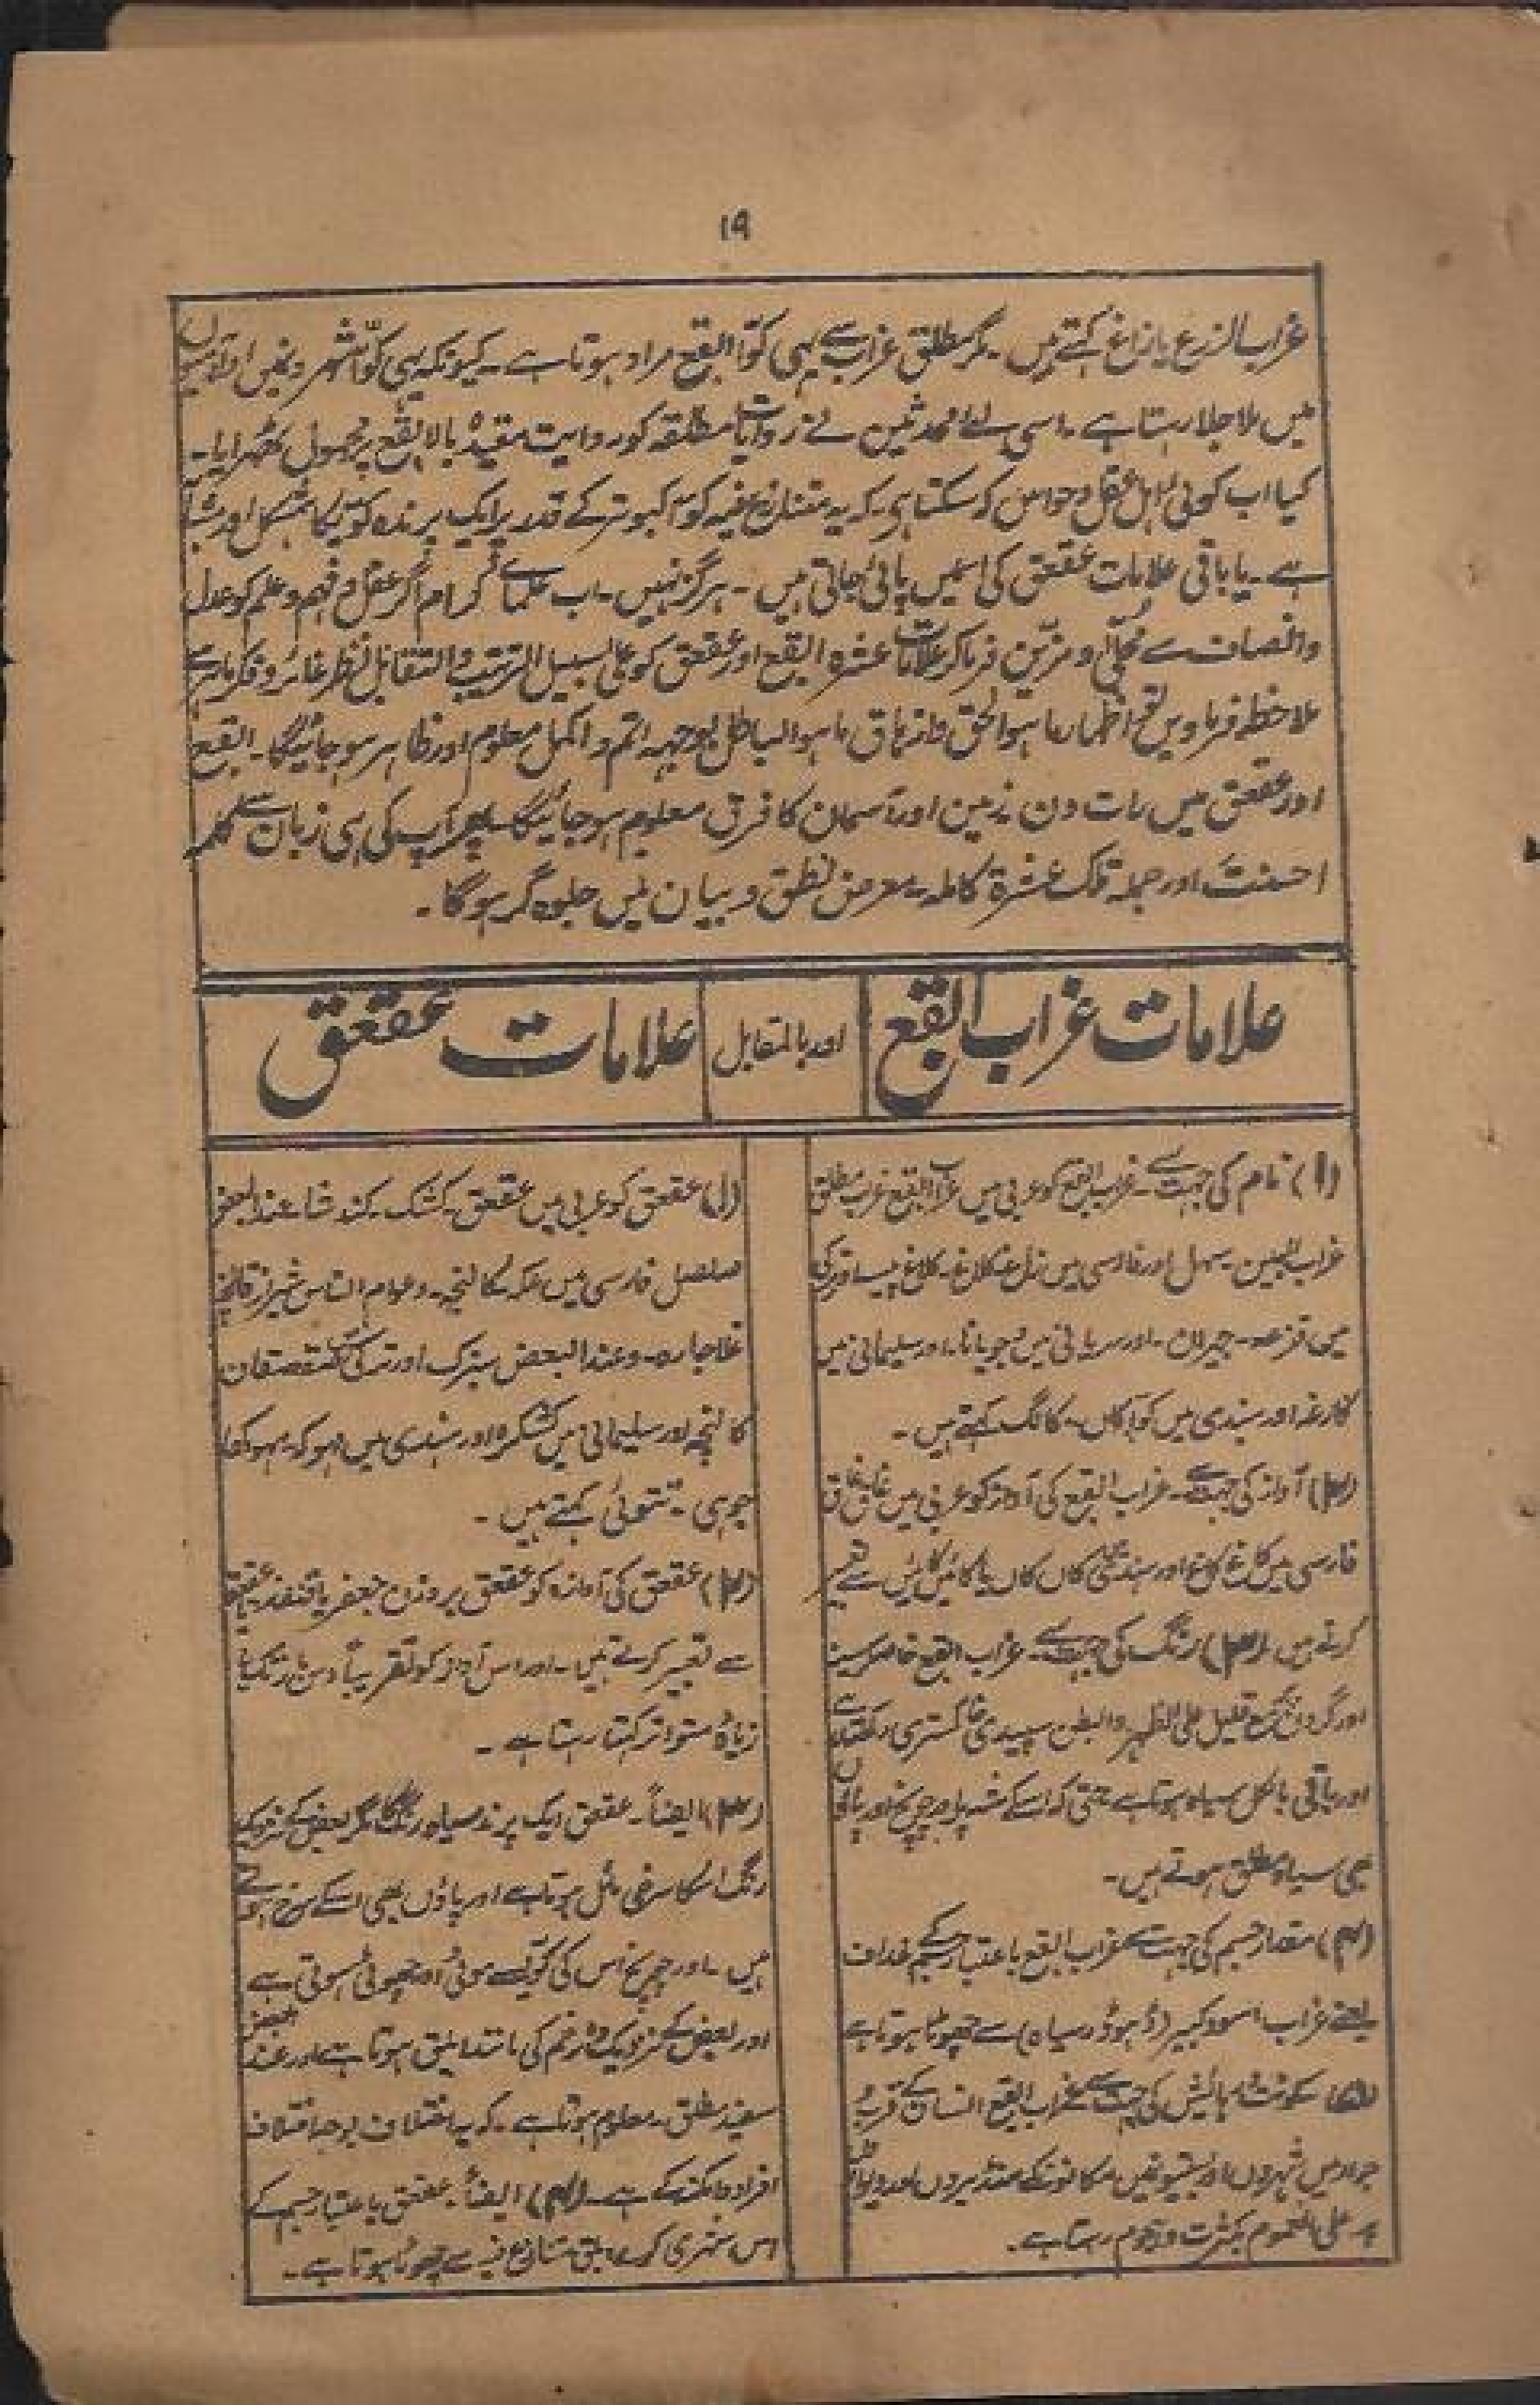 ۱۹
غراب الزرع یا زاغ کہتے ہیں۔ مگر مطلق غراب سے یہی کوّا ابقع مراد ہوتا ہے۔ کیونکہ یہی کوّا شہرونمیں اور آدمیوں
میں ملا جلا رہتا ہے۔ اسی لئے محدثین نے روایات مطلقہ کو روایت مقیدہ بالابقع پر محمول ٹھہرایا۔
کیا اب کوئی اہل عقل و حواس کہ سکتا ہی کہ یہ متنازع فیہ کوّا کبوتر کے قد پر ایک پرندہ کوّیکا ہمشکل اور مشابہ
ہے۔ یا باقی علامات عقعق کی اسمیں پائی جاتی ہیں۔ ہرگز نہیں۔ اب علمائے کرام اگر عقل و فہم و علم کو عدل
وانصاف سے محلّی و مزیّن فرما کر علامات عشرہ ابقع اور عقعق کو علی سبیل الترتیب والتقابل نظر غائر و فکر مائر سے
ملاحظہ فرماویں تو اظہار ما ہو الحق وازہاق ما ہو الباطل بوجہہ اتم و اکمل معلوم اور ظاہر ہو جائیگا۔ ابقع
اور عقعق میں رات دن زمین اور آسمان کا فرق معلوم ہو جائیگا۔ پھر آپ کی ہی زبان سے کلمہ
احسنت اور جملہ تلک عشرة کاملہ معرض نطق و بیان میں جلوہ گر ہوگا۔
علامات غراب ابقع
اور بالمقابل
علامات عقعق
(۱) نام کی جہت سے۔ غراب ابقع کو عربی میں غراب ابقع غراب مطلق
غراب البین۔ سہل اور فارسی میں زاغ کلاغ۔ کلاغ پیسہ اور ترکی
میں قزعہ۔ جیران۔ اور سریانی میں جویانا۔ اور سلیمانی میں
کارغہ اور ہندی میں کوّا کاں۔ کاگ کہتے ہیں۔
(۲) آواز کی جہت سے۔ غراب ابقع کی آواز کو عربی میں غاق غاق
فارسی میں کاغ کاغ اور ہندی میں کاں کاں یا کائیں کائیں سے تعبیر
کرتے ہیں (۳) رنگ کی جہت سے۔ غراب ابقع خاصکر سینہ
اور گردن قلیل علی الظہر والبطن سپیدی خاکستری رکھتا ہے
اور باقی بالکل سیاہ ہوتا ہے حتی کہ اسکے شہپر اور چونچ اور پاؤں
بھی سیاہ مطلق ہوتے ہیں۔
(۴) مقدار جسم کی جہت سے غراب ابقع باعتبار جسم کے غداف
یعنے غراب اسود کبیر (ڈہوڈر سیاہ) سے چھوٹا ہوتا ہے
(۵) سکونت رہائیش کی جہت سے غراب ابقع انسان کے قرب
جوار میں شہروں اور بستیونمیں مکانونکے منڈیروں اور دیواروں
پر علی العموم بکثرت و دوام رہتا ہے۔
(۱) عقعق کو عربی میں عقعق۔ کشک۔ کندشا عندالبعض
صلصل فارسی میں عکہ کالنجہ۔ و عوام الناس شیراز قالنجہ
غلاجارہ۔ و عندالبعض سبزک اور ترکی
کالنچہ اور سلیمانی میں کشکرہ اور ہندی میں
کہتے ہیں۔
(۲) عقعق کی آوازہ کو عقعق بروزن جعفر یا
سے تعبیر کرتے ہیں۔ اور اس آواز کو تقریباً دس بار تک یا
زیادہ متواتر کہتا رہتا ہے۔
(۳) ایضاً۔ عقعق ایک پرند سیاہ رنگ کا مگر بعض کے نزدیک
رنگ اسکا سرخی مائل ہوتا ہے اور پاؤں بھی اسکے سرخ ہوتے
ہیں۔ اور چونچ اس کی کوّے سے موٹی اور چھوٹی ہوتی ہے
اور بعض کے نزدیک رخم کی مانند ابلق ہوتا ہے اور عند البعض
سفید مطلق۔ معلوم ہوتا ہے۔ کہ یہ اختلاف بوجہ اختلاف
افراد و امکنہ کے ہے۔ (۴) ایضاً۔ عقعق باعتبار جسم کے
اس شہری کوے ابلق متنازع فیہ سے چھوٹا ہوتا ہے۔